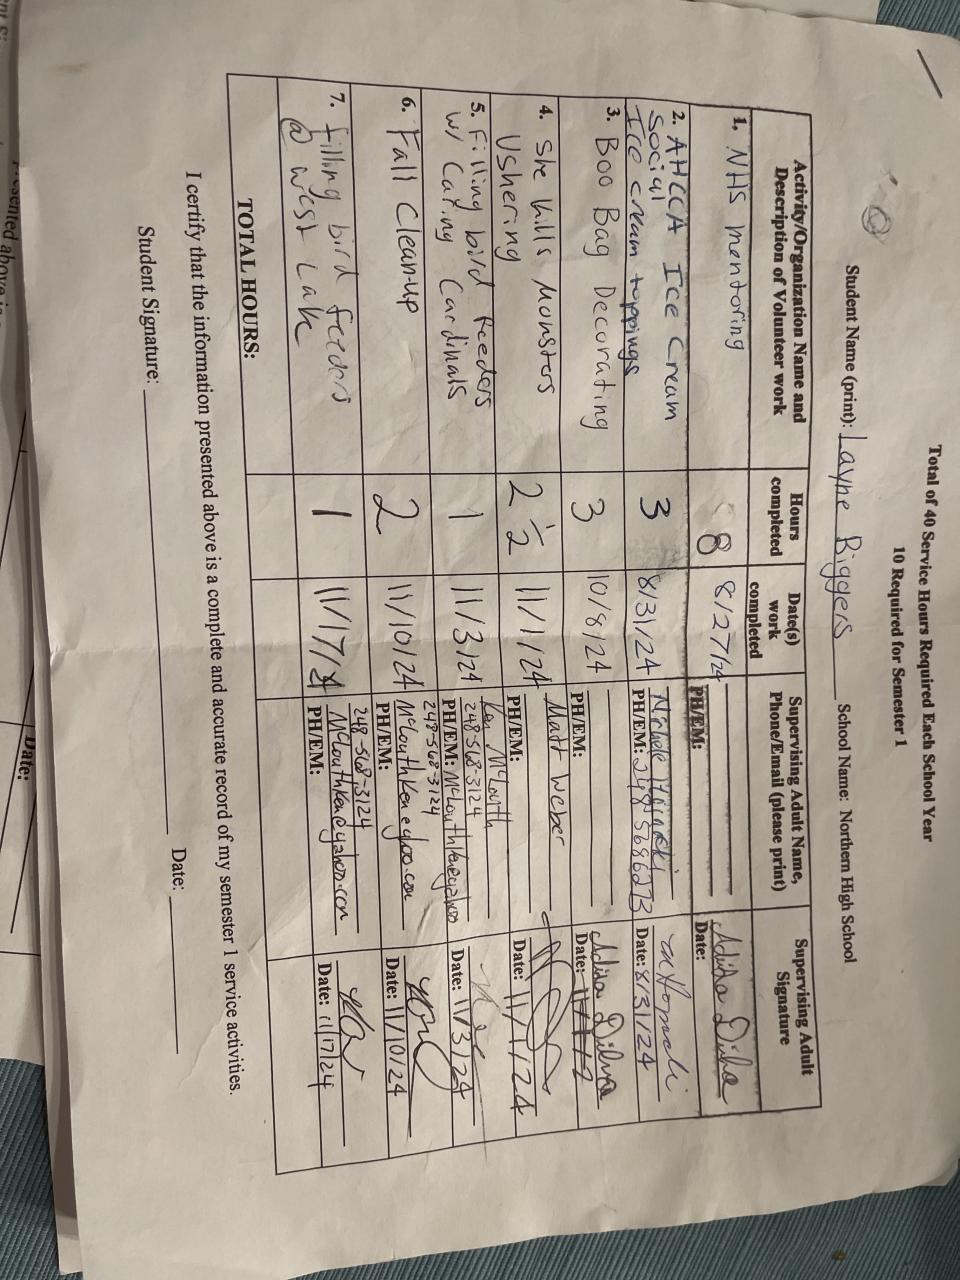 Total of 40 Service Hours Required Each School Year
10 Required for Semester 1
Student Name (print): Layne Biggers School Name: Northern High School
Activity/Organization Name and Description of Volunteer work
Hours completed
Date(s) work completed
Supervising Adult Name, Phone/Email (please print)
Supervising Adult Signature
1. NHS mentoring
8
8/27/24
PH/EM:
Date:
2. AHCCA Ice Cream
Social
Ice cream toppings
3
8/31/24
PH/EM: 248 5686273
Date: 8/31/24
3. Boo Bag Decorating
3
10/8/24
PH/EM:
Date:
4. She kills Monstes
Ushering
2 1/2
11/1/24
Matt Weber
PH/EM:
Date: 11/1/24
5. Filling bird feeders
w/ Caring Cardinals
1
11/3/24
Ken McLouth
248-568-3124
PH/EM:
Date: 11/3/24
6. Fall Clean-up
2
11/10/24
248-568-3124
PH/EM:
Date: 11/10/24
7. filling bird feeders
@ West Lake
1
11/17/24
248-568-3124
PH/EM:
Date: 11/17/24
TOTAL HOURS:
I certify that the information presented above is a complete and accurate record of my semester 1 service activities.
Student Signature: Date:
Date: